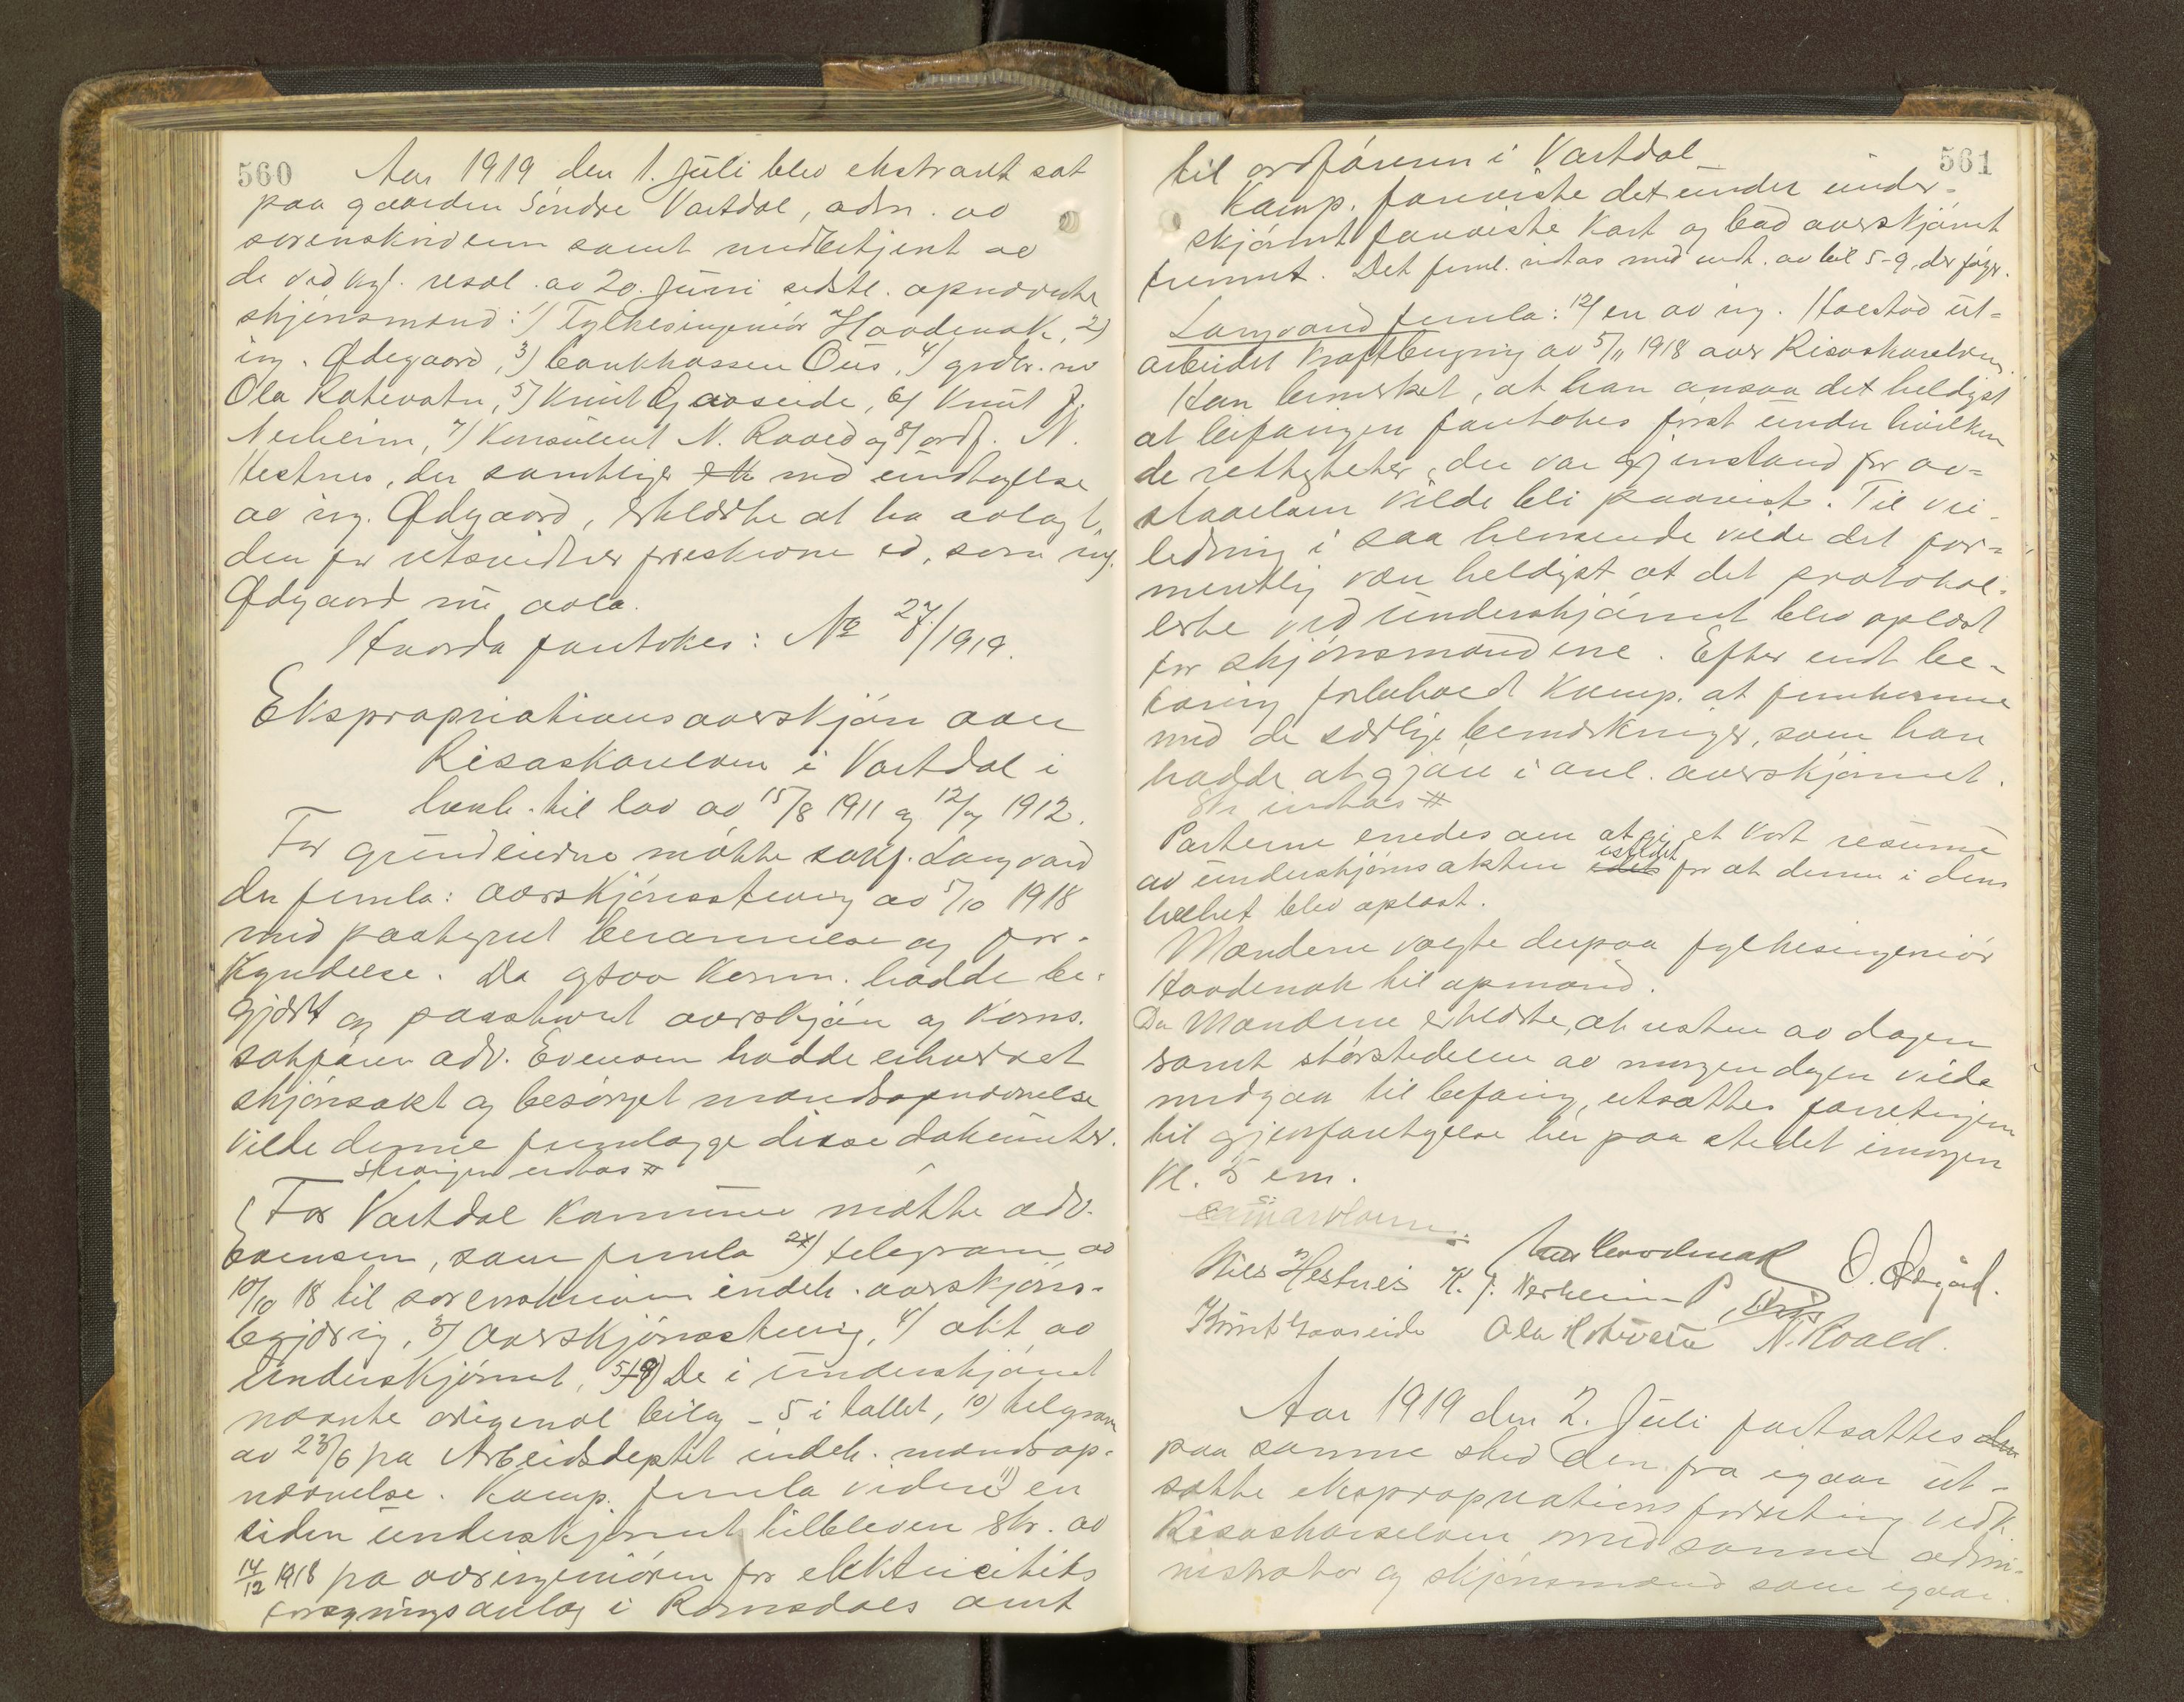 560
Aar 1919 den 1. Juli blev ekstraret sat
paa gaarden Söndre Vartdal, adm. av
sorenskriveren samt medbetjent av
de ved kgl. resol. av 20. Juni sidstl. opnævnte
skjönsmænd: 1) Fylkesingeniör Haadenak, 2)
ing. Ødegaard, 3) bankkasserer Ous, 4) grdbr. no
Ola Rotevatn, 5) Knut Gjaaseide, 6) Knut J.
Nerheim, 7) Konsulent N. Roald og 8) ordf. N.
Hestnes, der samtlige med undtagelse
av ing. Ødegaard, erklærte at ha avlagt
den for retsvidner foreskrevne ed, som ing.
Ødegaard nu avla.
Hvorda foretokes: No 27/1919.
Ekspropriationsoverskjön over
Risaskarelven i Vartdal i
henh. til lov av 15/8 1911 og 12/7 1912.
For grundeierne mötte sakf. Langvand
der fremla: overskjönsstevning av 5/10 1918
med paategnet berammelse og for-
kyndelse. Da ogsaa Komm. hadde be-
gjært og paastevnt overskjön og Koms.
sakförer adv. Evensen hadde erhvervet
skjönsakt og besörget mandsopnævnelse
vilde denne fremlægge disse dokumenter.
Stevningen indtas #
For Vartdal Kommune mötte adv.
Evensen, som fremla 2) telegram av
10/10 18 til sorenskriveren indeh. overskjöns-
begjæring, 3) Overskjönsstevning, 4) akt av
Underskjönnet, 5-9) De i underskjönnet
nævnte original bilag - 5 i tallet, 10) telegram
av 23/6 fra Arbeidsdeptet indeh. mandsop-
nævnelse. Komp. fremla videre 11) en
siden underskjönnet tilbleven skr. av
14/12 1918 fra overingeniören for elektricitets
forsyningsanlæg i Romsdals amt
561
til ordföreren i Vartdal
Komp. foreviste det under under-
skjönnet foreviste Kart og bad overskjönnet
fremmet. Det freml. indtas med undt. av bil 5-9, der följer.
Langvand fremla: 12) en av ing. Holstad ut-
arbeidet Kraftberegning av 5/11 1918 over Risaskarelven.
Han bemerket, at han ansaa det heldigst
at befaringen foretokes först under hvilken
de rettigheter, der var gjenstand for av-
staaelsen vilde bli paavist. Til vei-
ledning i saa henseende vilde det for-
mentlig være heldigst at det protokol-
lerte ved underskjönnet blev oplæst
for skjönsmændene. Efter endt be-
faring forbeholdt Komp. at fremkomme
med de særlige bemerkninger, som han
hadde at gjöre i anl. overskjönnet.
Skr. indtas #
Parterne enedes om at gi et kort resumé
av underskjönsakten istedet for at denne i dens
helhet blev oplæst.
Mændene valgte derpaa fylkesingeniör
Haadenak til opmand.
Da Mændene erklærte, at resten av dagen
samt störstedelen av morgendagen vilde
medgaa til befaring, utsattes forretningen
til gjenforetagelse her paa stedet imorgen
Kl. 5 em.
O. Ødegård.
Nils Hestnes K. J. Nerheim P. Ous
Knut Gaaseide Ola Rotevatn N. Roald.
Aar 1919 den 2. Juli fortsattes den
paa samme sted den fra igaar ut-
satte ekspropriationsforretning vedk.
Risaskarselven med samme admi-
nistrator og skjönsmænd som igaar.